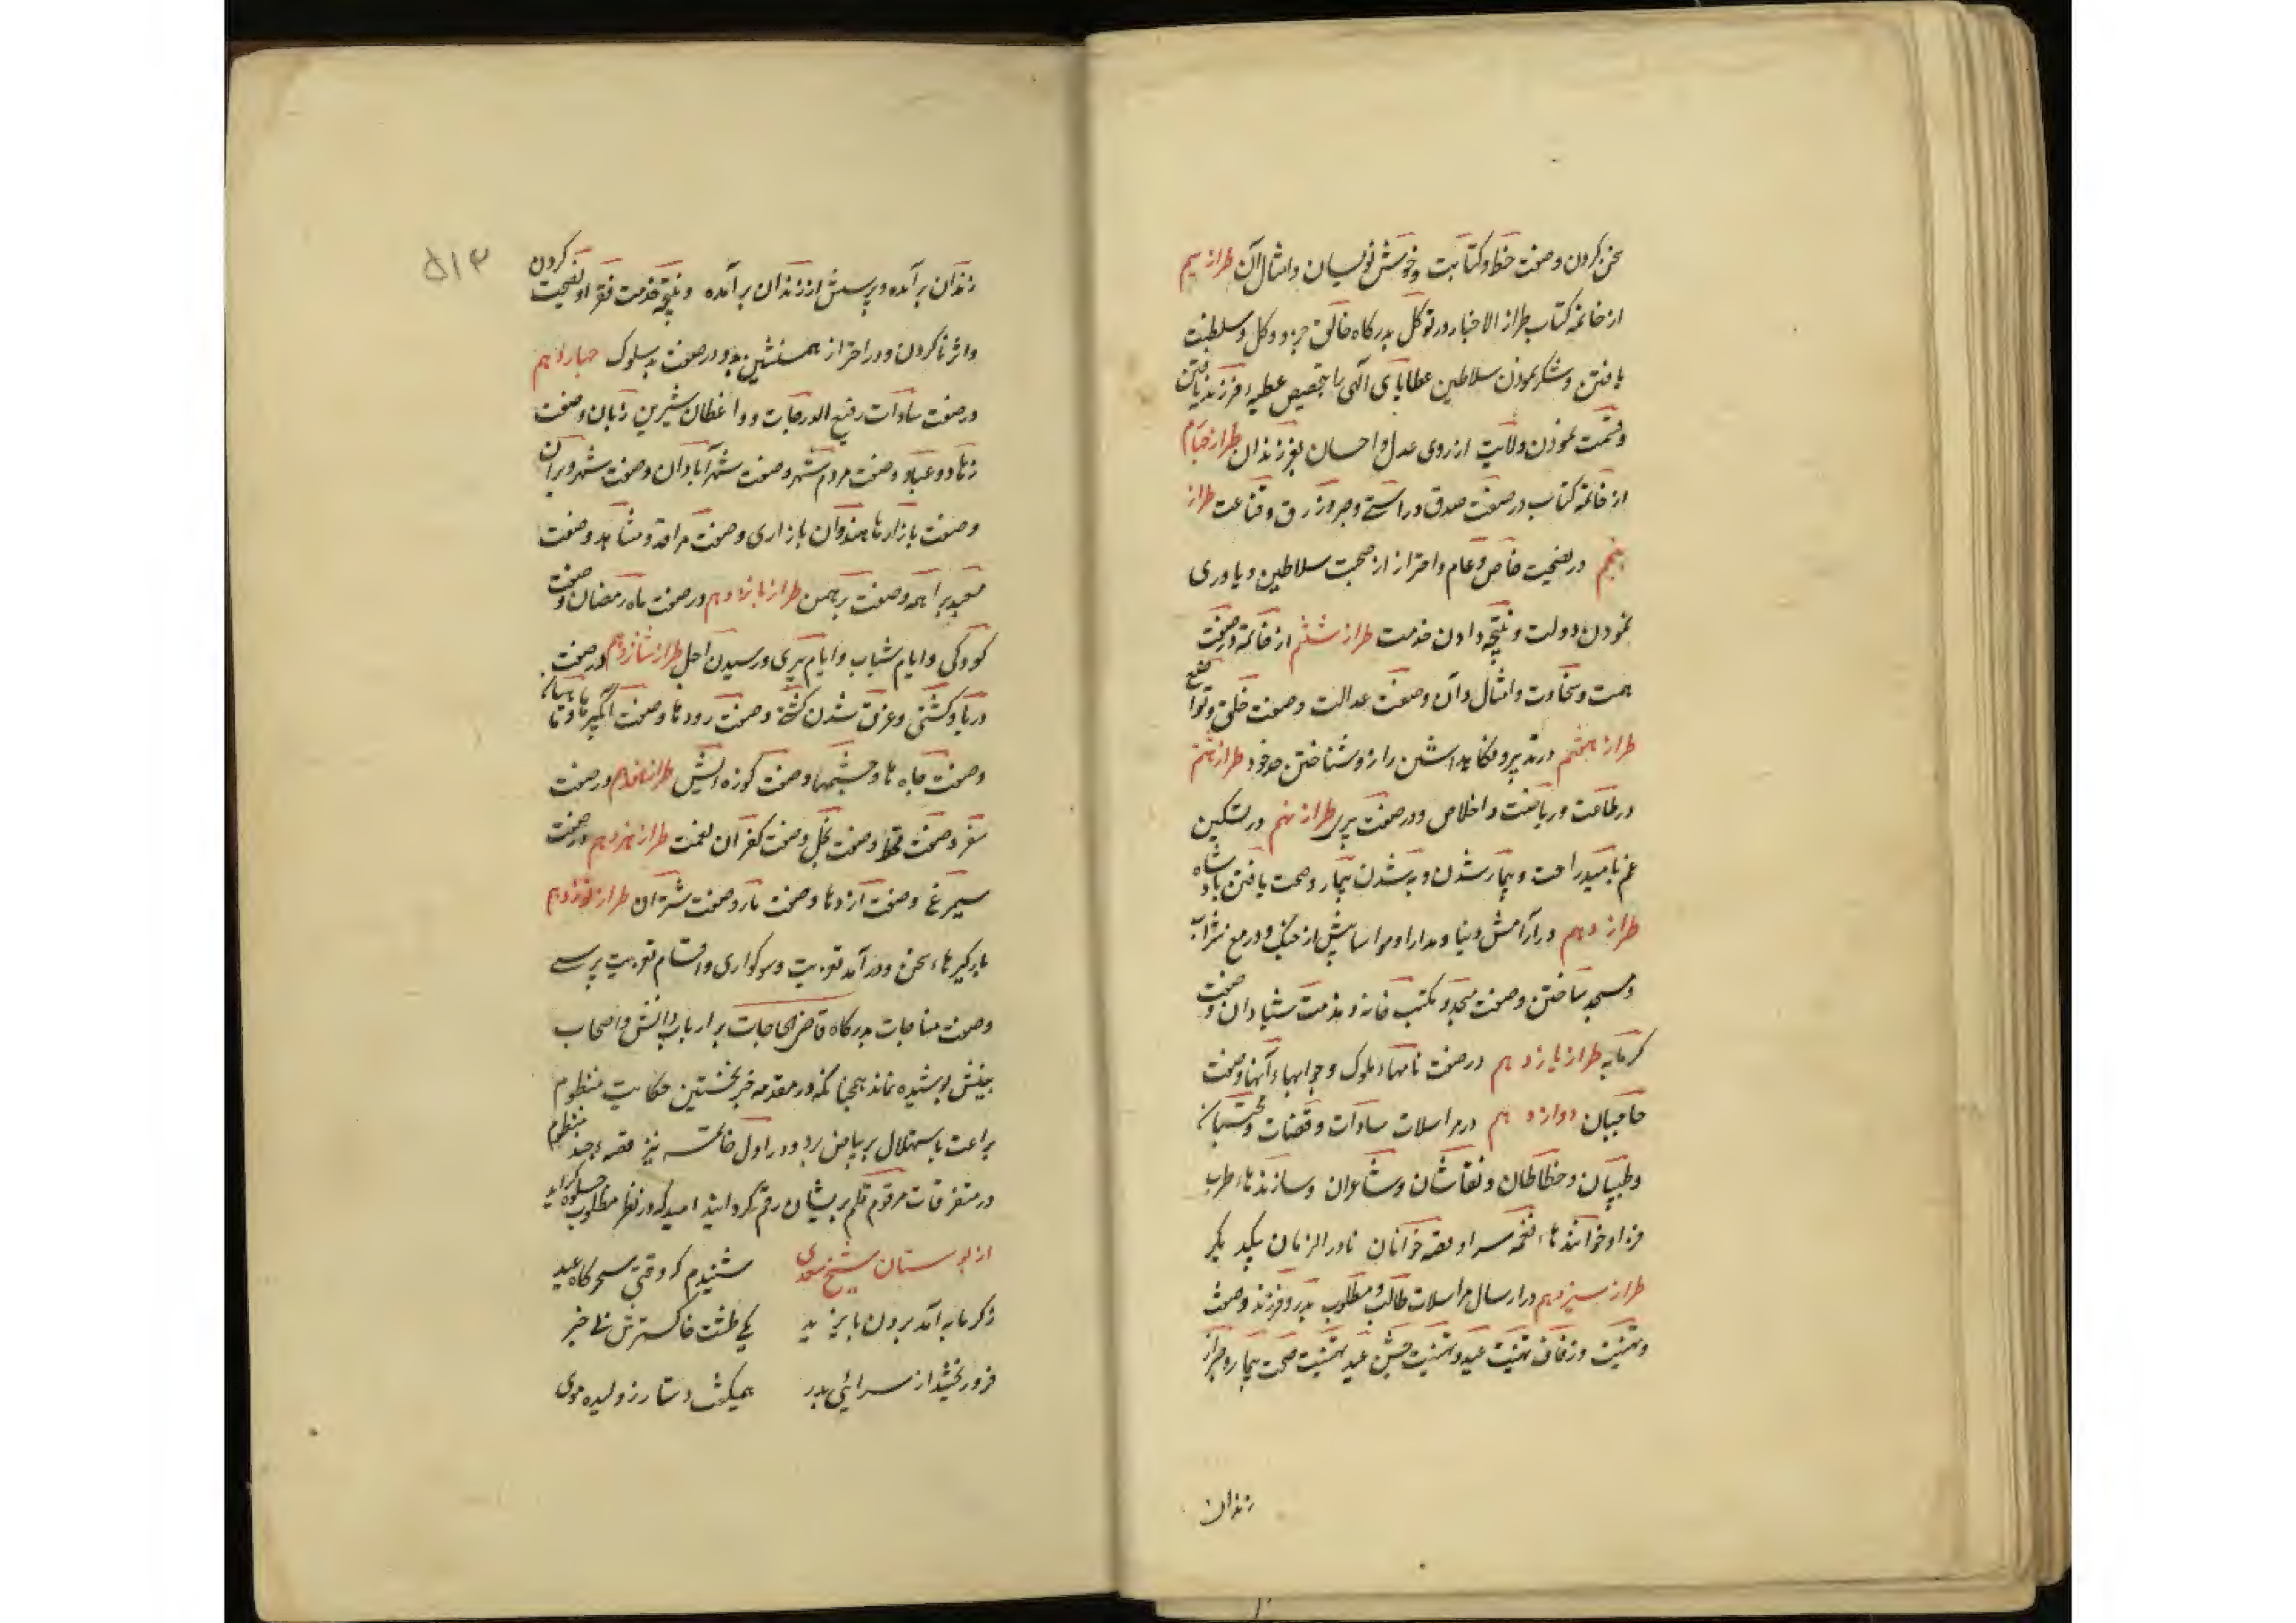 سخن کردن و صفت خط و کتابت و خوش نویسان و امثال آن طراز سیم
از خاتمه کتاب طراز الاخبار در توکل بدرکاه خالق جزو و کل و سلطنت
یافتن و شکر نمودن سلاطین عطایای الهی را بتخصیص عطیه فرزند یافتن
و قسمت نمودن ولایت از روی عدل و احسان بفرزندان طراز چهارم
از خاتمه کتاب در صفت صدق و راستی و صبر و رزق و قناعت طراز
پنجم در نصیحت خاص و عام و احتراز از صحبت سلاطین و یاوری
نمودن دولت و نتیجه دادن خدمت طراز ششم از خاتمه در صفت
همت و سخاوت و امثال و آن و صفت عدالت و صفت خلق و تواضع
طراز هفتم در تدبیر و نکاهداشتن راز و شناختن حد خود طراز هشتم
در طاعت و ریاضت و اخلاص و در صفت پیری طراز نهم در تسکین
غم بامید راحت و بیمار شدن و به شدن بیمار و صحت یافتن پادشاه
طراز دهم در آرامش دنیا و مدارا و مواسا پیش از جنک و در منع شراب
و مسجد ساختن و صفت مسجد و مکتب خانه و مذمت شیادان و صفت
کرمابه طراز یازدهم در صفت نامهاء ملوک و جوابهاء آنها و صفت
حاجبان دوازدهم در مراسلات سادات و قضات و محتسبان
و طبیبان و خطاطان و نقاشان و شاعران و سازندهاء طرب
فزا و خوانندهاء نغمه سرا و قصه خوانان نادر الزمان بیکدیکر
طراز سیزدهم در ارسال مراسلات طالب و مطلوب پدر و فرزند و صفت
و تهنیت و زفاف تهنیت عید و تهنیت جشن عید تهنیت صحت بیمار و خبر از
زندان
۵۱۳
زندان برآمده و پرسش از زندان برآمده و نتیجه خدمت فقرا و نصیحت کردن
و اثر ناکردن و در احتراز همنشین بد و در صفت بد سلوک چهاردهم
در صفت سادات رفیع الدرجات و واعظان شیرین زبان و صفت
زهاد و عباد و صفت مردم شهر و صفت شهر آبادان و صفت شهر ویران
و صفت بازارها هندوان بازاری و صفت مراقد و مشاهد و صفت
معبد براهمه و صفت برهمن طراز پانزدهم در صفت ماه رمضان و صفت
کودکی و ایام شباب و ایام پیری و رسیدن اجل طراز شانزدهم در صفت
دریا و کشتی و غرق شدن کشتی و صفت رودها و صفت آبکیرها و
و صفت چاه ها و چشمها و صفت کوزه طراز هفدهم در صفت
سفر و صفت قحط و صفت بخل و صفت کفران نعمت طراز هژدهم در صفت
سیمرغ و صفت اژدها و صفت مار و صفت شتران طراز نوزدهم
بارکیرهاء سخن و در آمد تعزیت و سوکواری و اقسام تعزیت پرسی
و صفت مناجات بدرکاه قاضی الحاجات بر ارباب دانش و اصحاب
بینش پوشیده نماند همچنانکه در مقدمه خبر نخستین حکایت منظوم
براعت باستهلال بر بیاض برد و در اول خاتمه نیز قصه چند منظوم
در متفرقات مرقوم قلم پریشان رقم کردانید امید که در نظر مطلوب جلوه کر آید
از بوستان شیخ سعدی شنیدم که وقتی سحرکاه عید
ز کرمابه آمد برون بایزید یکی طشت خاکسترش بی خبر
فرو ریختند از سرائی بدر همیکفت دستار ژولیده موی